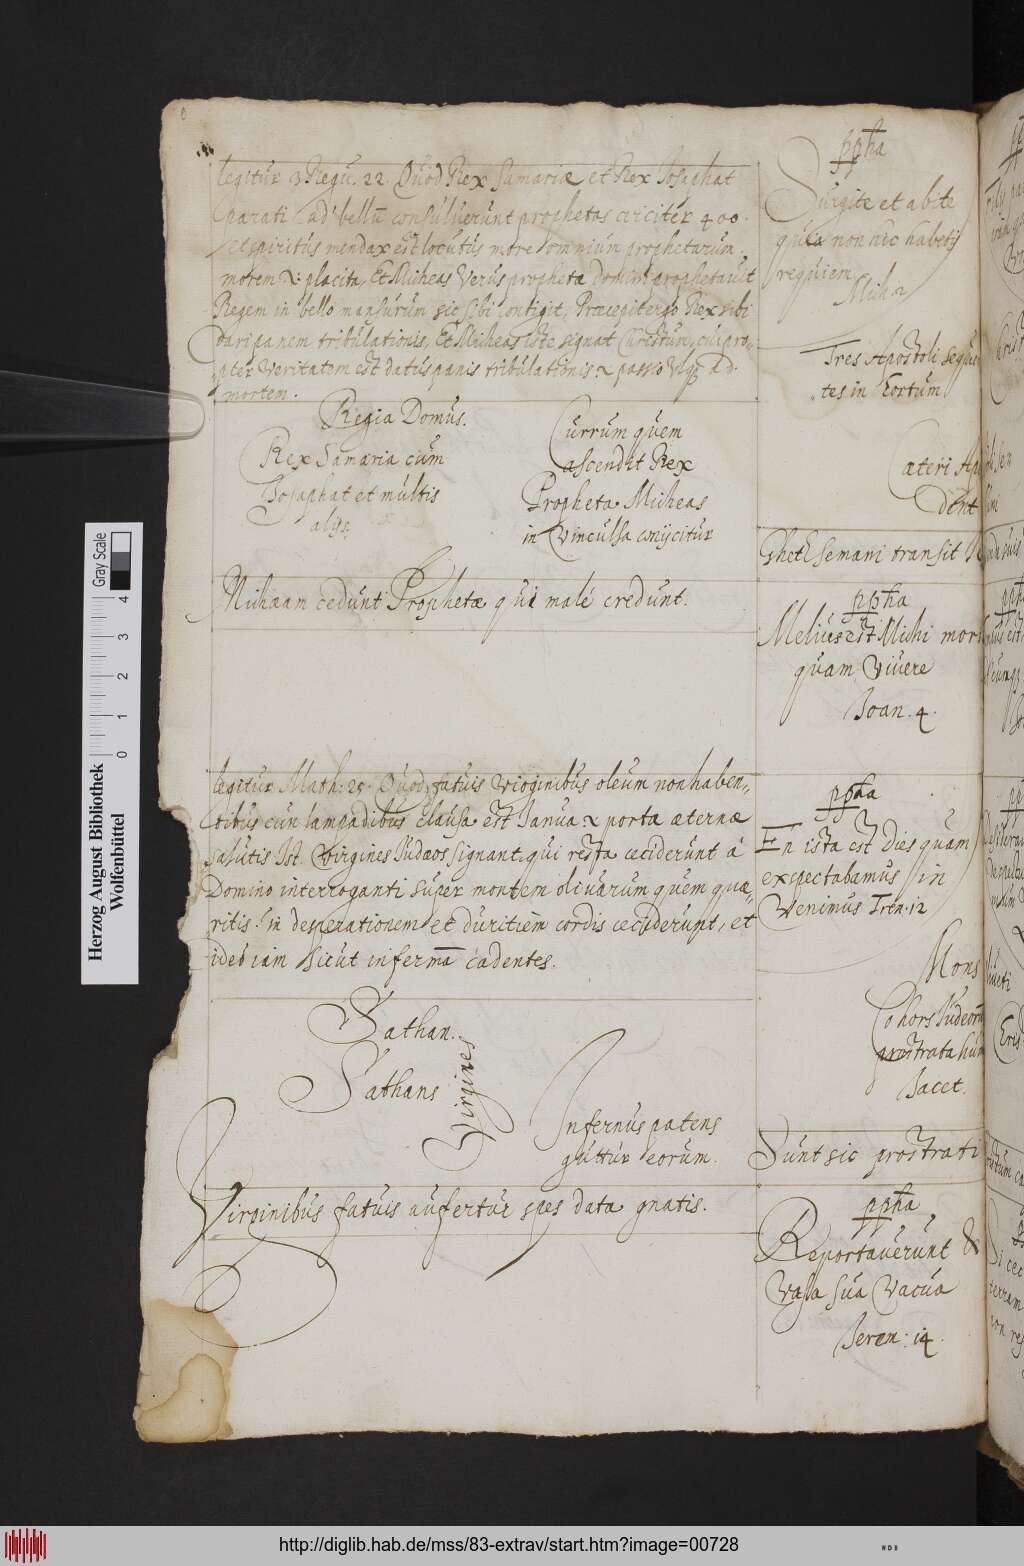 legitur 3 Regu. 22. Quod Rex Samariæ et Rex Josaphat
parati ad bellū consuluerunt prophetas circiter 400.
et spiritus mendax est locutus more omnium prophetarum.
placita, Et Micheas Verus propheta Domini prophetauit
Regem in bello sic sibi contigit, Præcepit ergo Rex sibi
dari panem tribulationis, Et Micheas iste signat Christum, cui pro„
pter Veritatem est datus panis tribulationis & passio ad
mortem.
Regia Domus.
Rex Samaria cum
Josaphat et multis
alijs
Currum quem
ascendit Rex
Propheta Micheas
in Vincula conijcitur
Michæam cedunt Prophetæ qui malé credunt.
legitur Math: 25. Quod fatuis virginibus oleum non haben„
tibus cum lampadibus clausa est Janua & porta æternæ
salutis Ist. Virgines Judæos signant, qui ceciderunt á
Domino interroganti super montem oliuarum quem quæ„
ritis? in desperationem et duritiem cordis ceciderunt, et
ideo iam sicut in cadentes.
Sathan.
Sathans
Virgines
Infernus patens
guttur eorum.
Virginibus fatuis aufertur spes data gnatis.
ppħa
Surgite et abite
quia non hic habetis
requiem
Mich 2
Tres Apostoli seque
„tes in hortum
Cæteri Ap
dent
Ghethsemani transit
ppħa
Melius est Mihi mors
quam Viuere
Joan. 4.
ppħa
En ista est Dies quam
expectabamus in
Venimus Tren. 12
Mons
Cohors Judeorū
prostrata hum
Jacet.
Sunt sic prostrati
ppħa
Reportauerunt &
Vasa sua Vacua
Jerem: 14.
Herzog August Bibliothek
Wolfenbüttel
Gray Scale
0 1 2 3 4
http://diglib.hab.de/mss/83-extrav/start.htm?image=00728
WDB